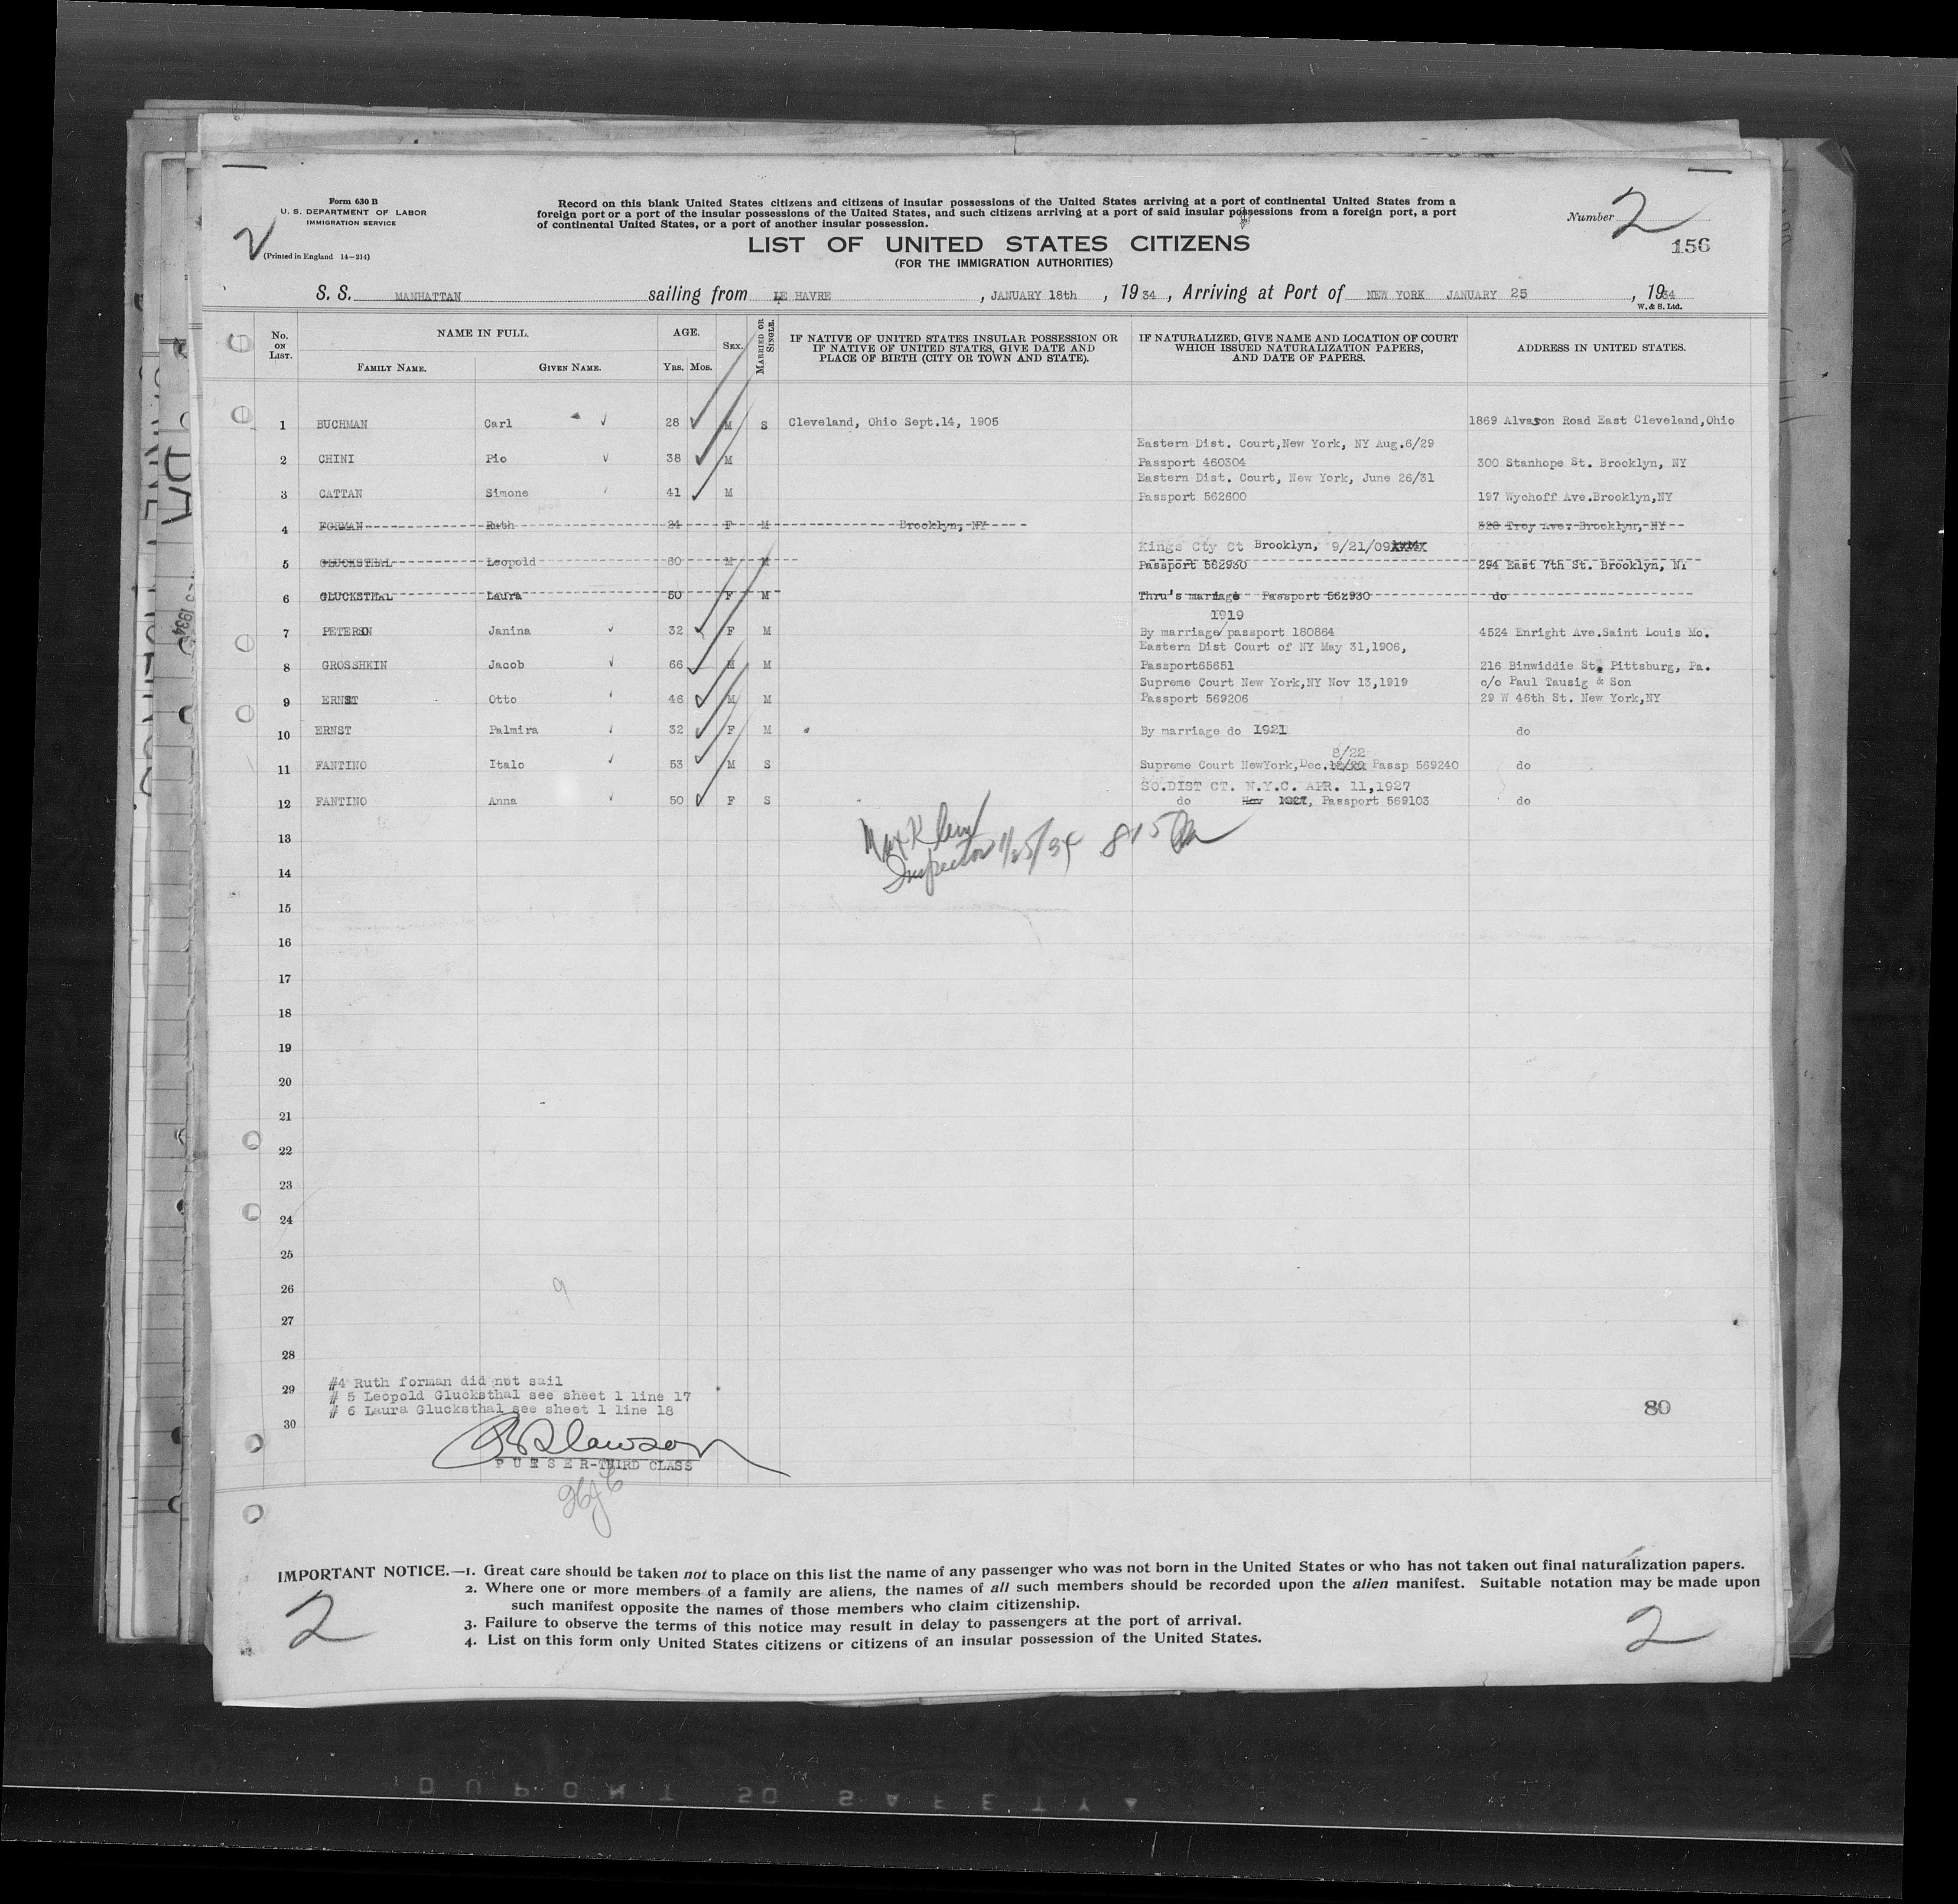 Form 630 B
U. S. DEPARTMENT OF LABOR
IMMIGRATION SERVICE
2
(Printed in England 14—214)
Record on this blank United States citizens and citizens of insular possessions of the United States arriving at a port of continental United States from a
foreign port or a port of the insular possessions of the United States, and such citizens arriving at a port of said insular possessions from a foreign port, a port
of continental United States, or a port of another insular possession.
Number 2
156
LIST OF UNITED STATES CITIZENS
(FOR THE IMMIGRATION AUTHORITIES)
S. S. MANHATTAN sailing from LE HAVRE , JANUARY 18th , 19 34 , Arriving at Port of NEW YORK JANUARY 25 , 1934
W. & S. Ltd.
No. ON LIST. NAME IN FULL. AGE. SEX. MARRIED OR SINGLE. IF NATIVE OF UNITED STATES INSULAR POSSESSION OR IF NATIVE OF UNITED STATES, GIVE DATE AND PLACE OF BIRTH (CITY OR TOWN AND STATE). IF NATURALIZED, GIVE NAME AND LOCATION OF COURT WHICH ISSUED NATURALIZATION PAPERS, AND DATE OF PAPERS. ADDRESS IN UNITED STATES.
FAMILY NAME. GIVEN NAME. YRS. MOS.
1 BUCHMAN Carl 28 M S Cleveland, Ohio Sept.14, 1905 1869 Alvason Road East Cleveland,Ohio
Eastern Dist. Court,New York, NY Aug.6/29
2 CHINI Pio 38 M Passport 460304 300 Stanhope St. Brooklyn, NY
Eastern Dist. Court, New York, June 26/31
3 CATTAN Simone 41 M Passport 562600 197 Wychoff Ave.Brooklyn,NY
4 FORMAN Ruth 24 F M Brooklyn, NY 328 Troy Ave. Brooklyn, NY
Kings Cty Ct Brooklyn, 9/21/09
5 GLUCKSTHAL Leopold 60 M M Passport 562930 294 East 7th St. Brooklyn, NY
6 GLUCKSTHAL Laura 50 F M Thru's marriage Passport 562930 do
1919
7 PETERSON Janina 32 F M By marriage/passport 180864 4524 Enright Ave.Saint Louis Mo.
Eastern Dist Court of NY May 31,1906,
8 GROSSHKIN Jacob 66 M M Passport65651 216 Binwiddie St. Pittsburg, Pa.
Supreme Court New York,NY Nov 13,1919 c/o Paul Tausig & Son
9 ERNST Otto 46 M M Passport 569206 29 W 46th St. New York,NY
10 ERNST Palmira 32 F M By marriage do 1921 do
8/22
11 FANTINO Italo 53 M S Supreme Court NewYork,Dec. Passp 569240 do
SO.DIST CT. N.Y.C. APR. 11,1927
12 FANTINO Anna 50 F S do Nov 1927, Passport 569103 do
13
Max Klein
Inspector 1/25/34 815
14
15
16
17
18
19
20
21
22
23
24
25
26
9
27
28
29
30
#4 Ruth forman did not sail
# 5 Leopold Glucksthal see sheet 1 line 17
# 6 Laura Glucksthal see sheet 1 line 18
80
PURSER-THIRD CLASS
IMPORTANT NOTICE.—1. Great care should be taken not to place on this list the name of any passenger who was not born in the United States or who has not taken out final naturalization papers.
2. Where one or more members of a family are aliens, the names of all such members should be recorded upon the alien manifest. Suitable notation may be made upon
such manifest opposite the names of those members who claim citizenship.
3. Failure to observe the terms of this notice may result in delay to passengers at the port of arrival.
4. List on this form only United States citizens or citizens of an insular possession of the United States.
2
2
DUPONT 50 SAFETY